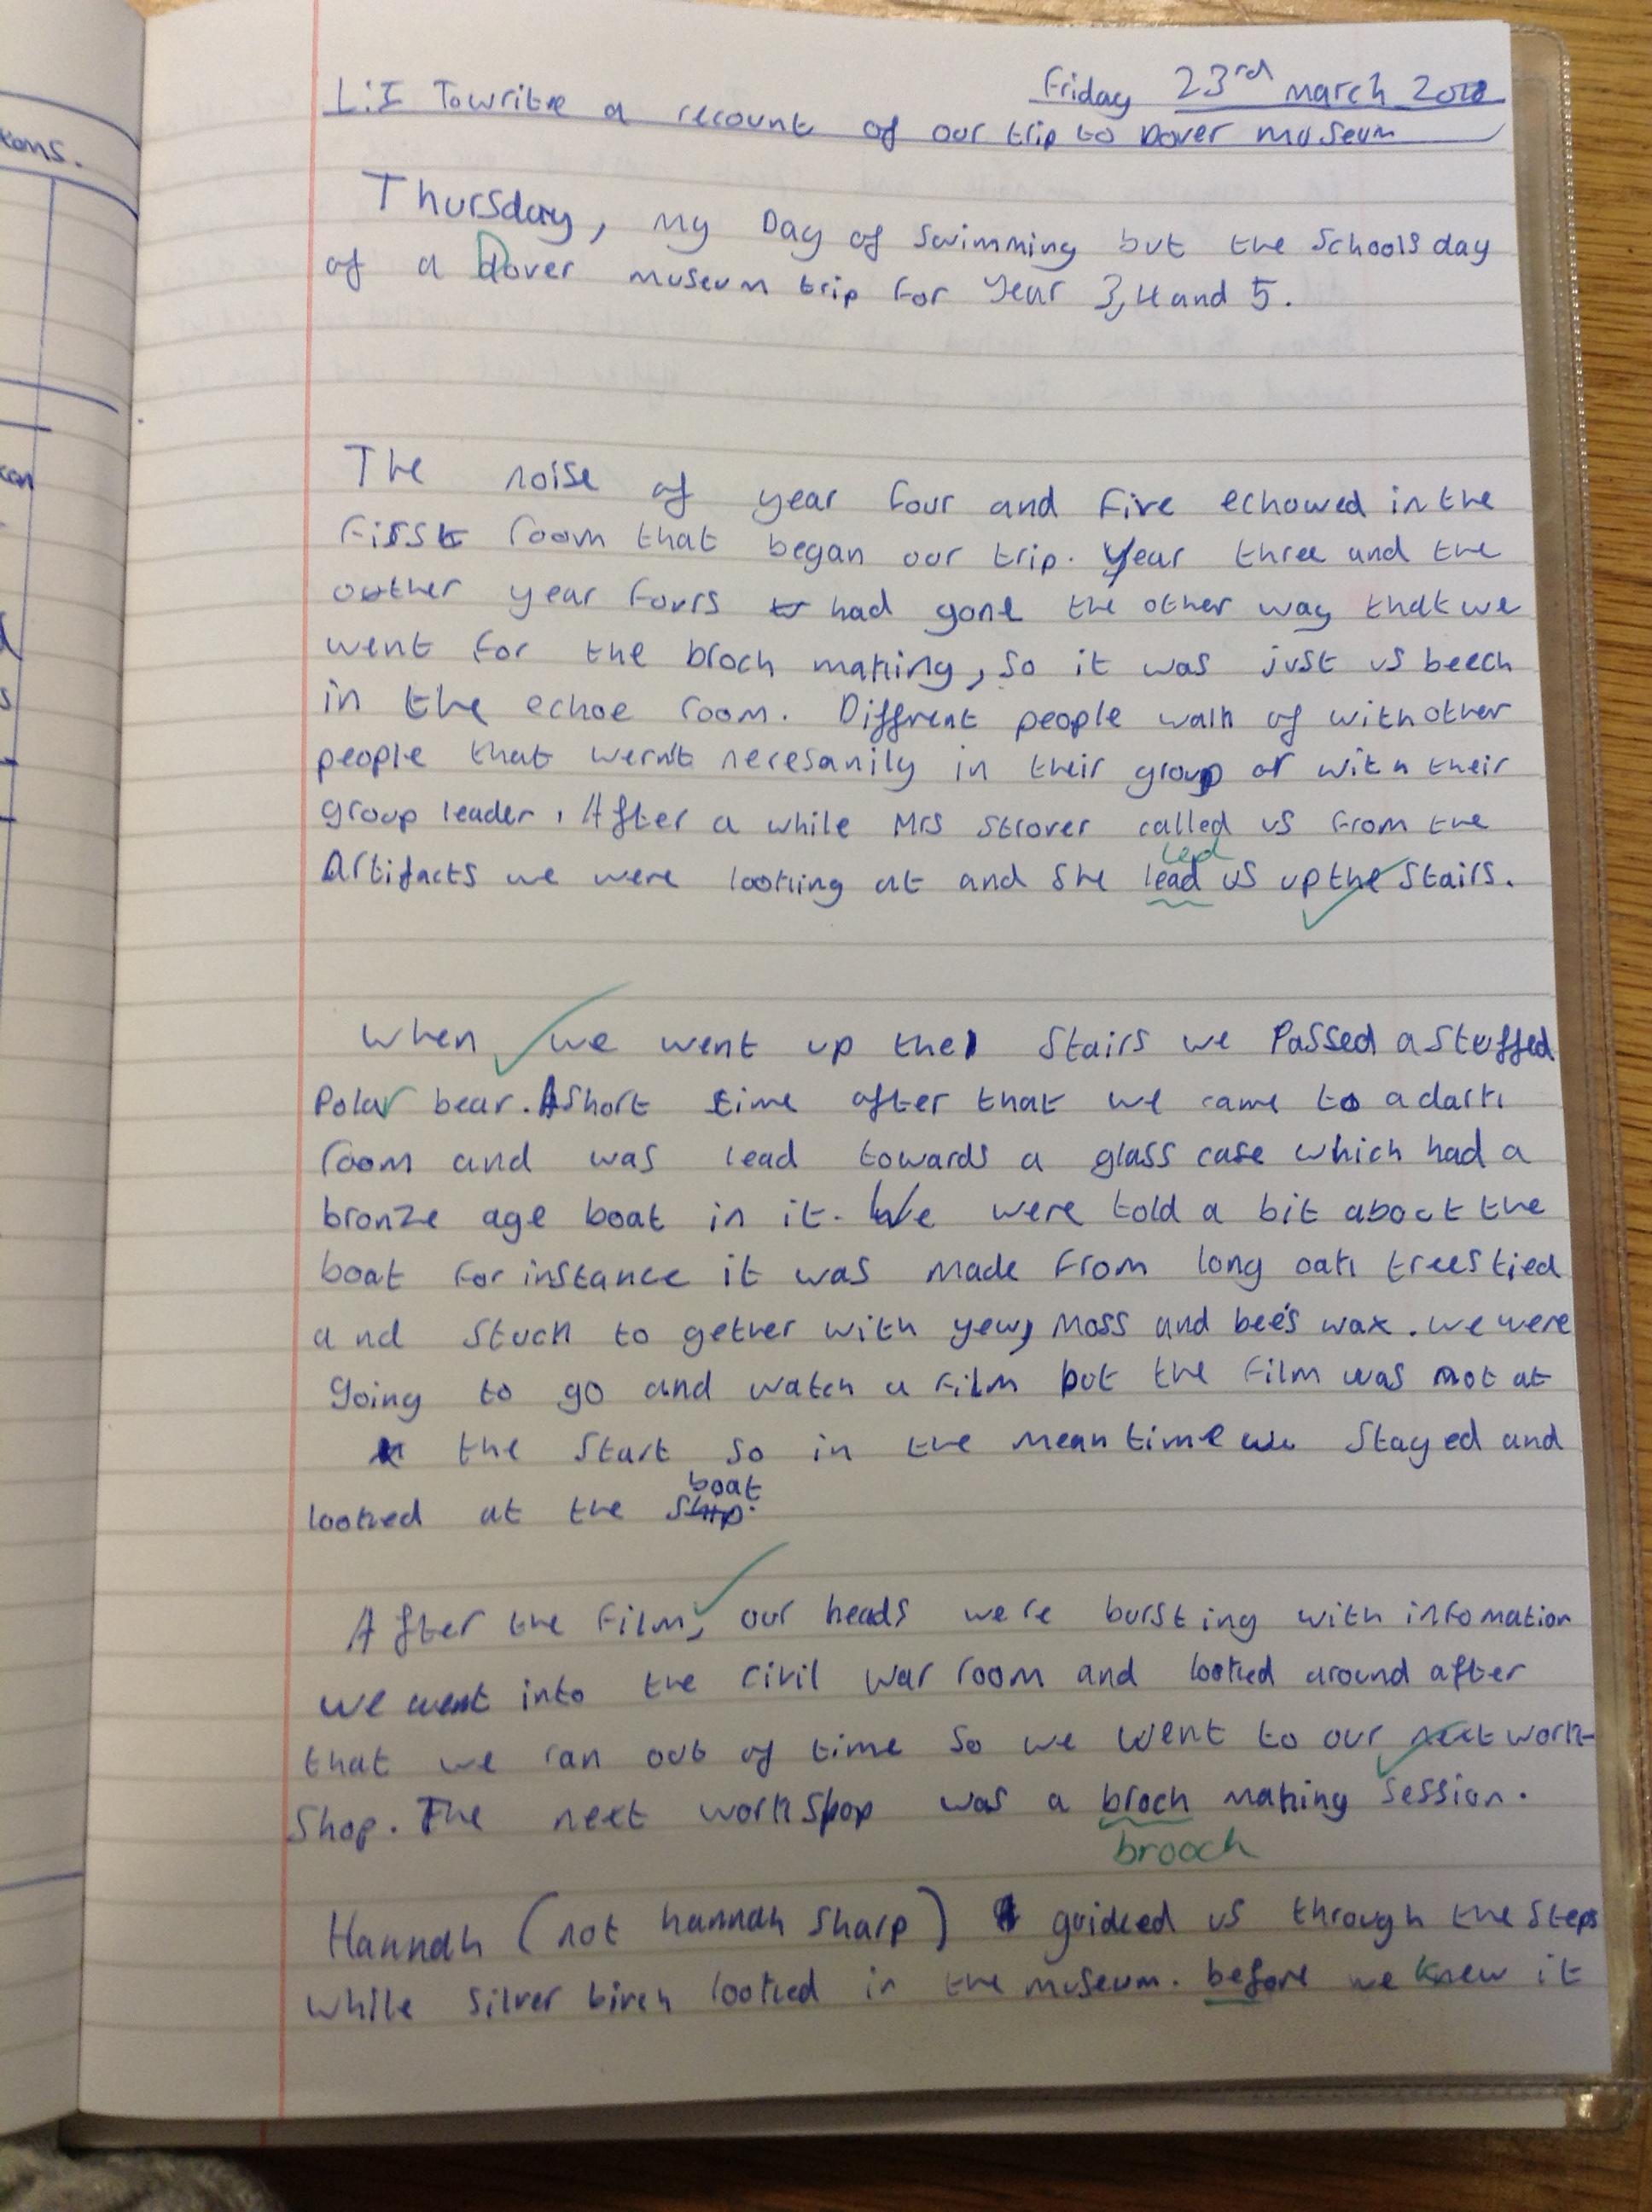 Friday 23rd march 2018
L:I To write a recount of our trip to Dover museum
Thursday, my Day of swimming but the schools day
of a Dover museum trip for Year 3, 4 and 5.
The noise of year four and five echowed in the
first room that began our trip. Year three and the
outher year fours had gone the other way that we
went for the broch making, so it was just us beech
in the echoe room. Diffrent people walk of with other
people that wern't necesarily in their group or with their
group leader. After a while Mrs Strover called us from the
led
Artifacts we were looking at and she lead us up the stairs.
When we went up the stairs we Passed a stuffed
Polar bear. A short time after that we came to a dark
room and was lead towards a glass case which had a
bronze age boat in it. We were told a bit about the
boat for instance it was made from long oak trees tied
and stuck to gether with yew, moss and bee's wax. we were
going to go and watch a film but the film was not at
the start so in the mean time we stayed and
boat
looked at the ship.
After the film, our heads were bursting with infomation
we went into the civil war room and looked around after
that we ran out of time so we went to our next work-
shop. The next workshop was a broch making session.
brooch
Hannah (not hannah sharp) guidced us through the steps
while silver birch looked in the museum. before we knew it